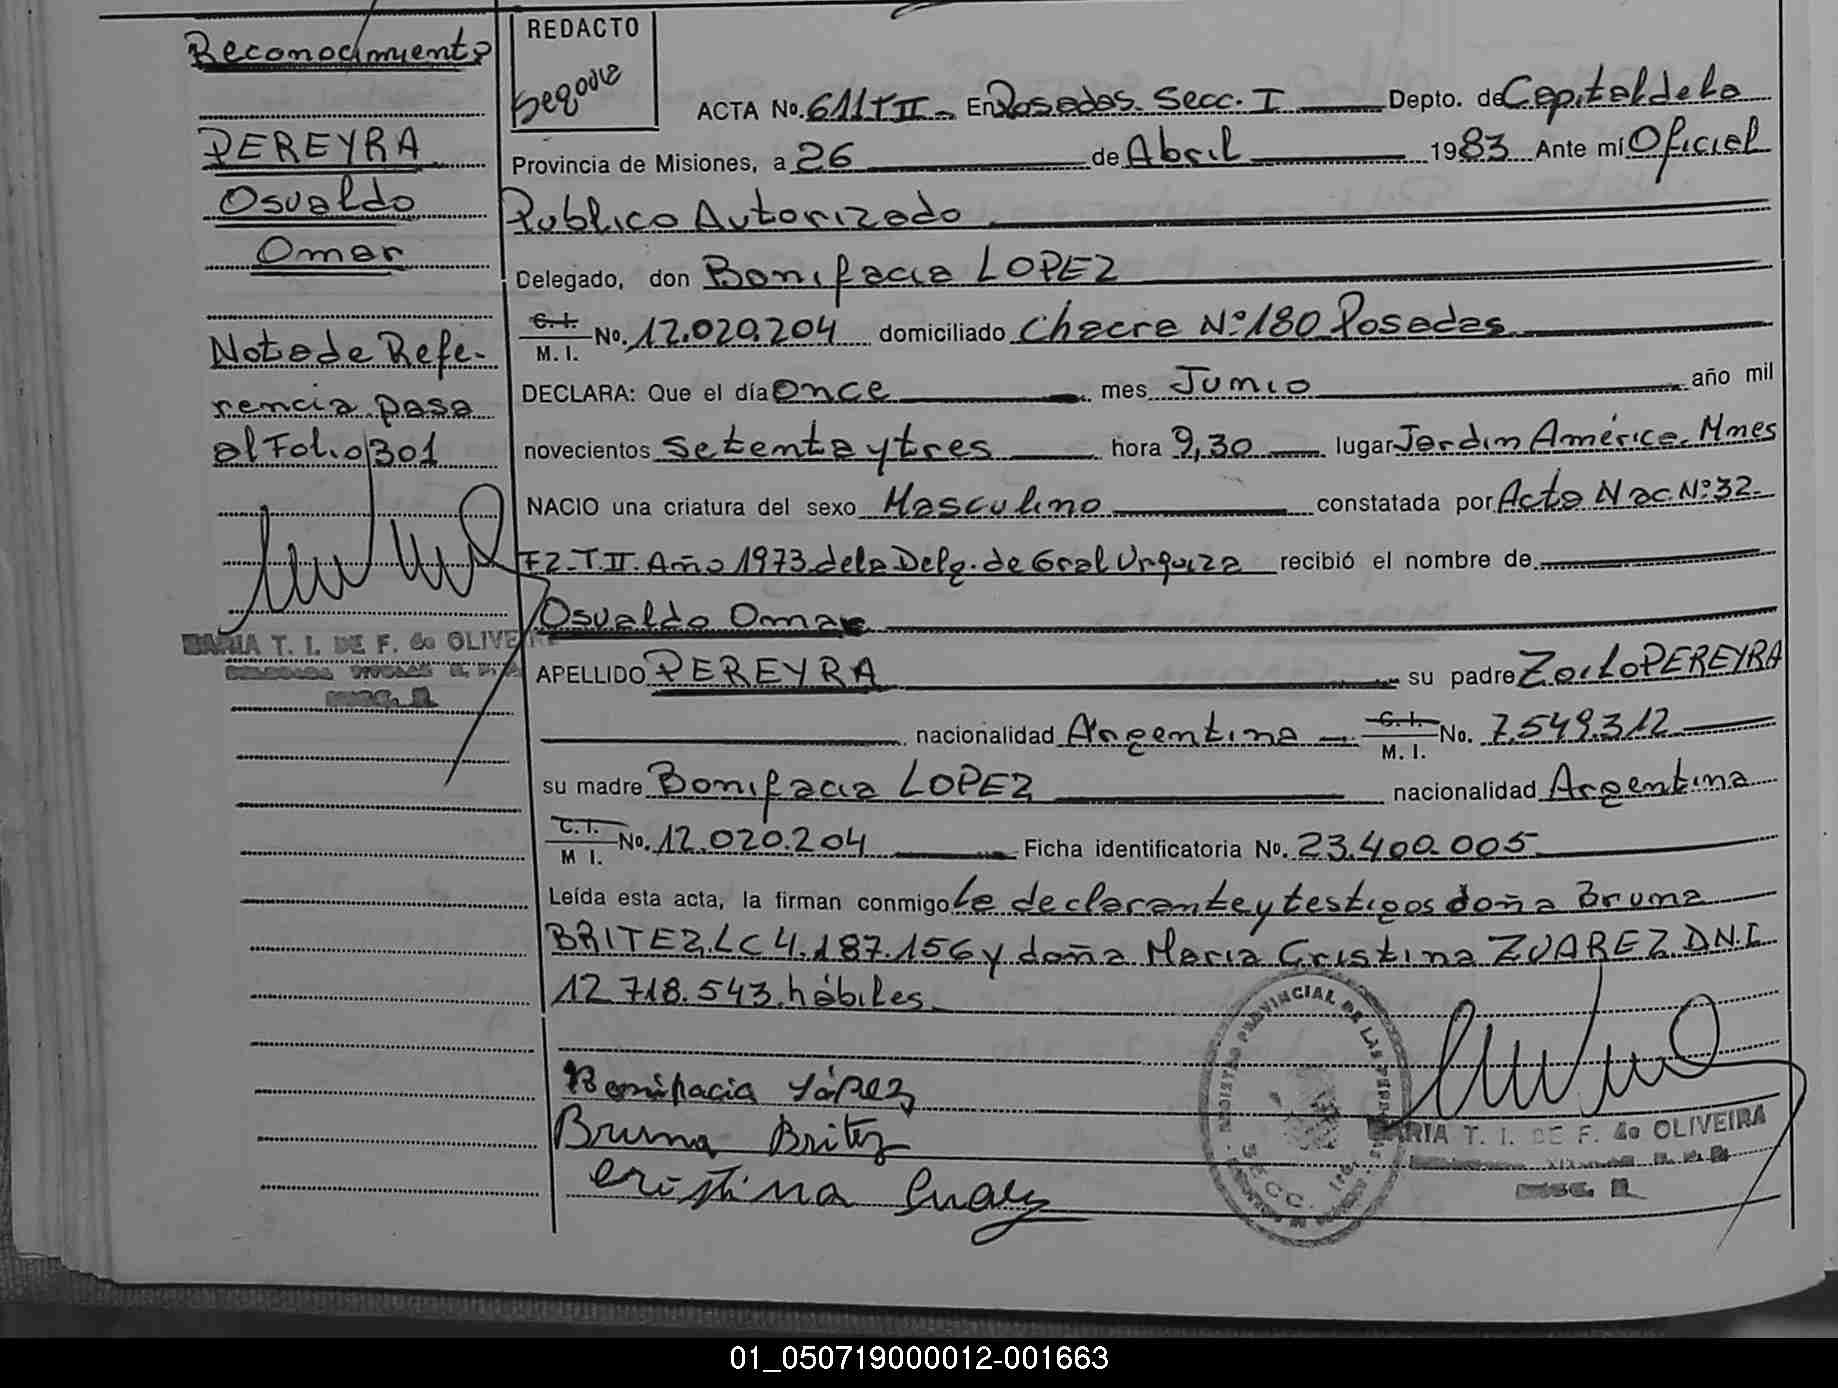 Reconocimiento
PEREYRA
Osvaldo
Omar
Nota de Refe-
rencia pasa
al Folio 301
MARIA T. I. DE F. de OLIVEIRA
REDACTO
Segovie
ACTA No. 611 T II - En Posadas. Secc. I Depto. de Capital de la
Provincia de Misiones, a 26 de Abril 1983 Ante mí Oficial
Publico Autorizado
Delegado, don Bonifacia LOPEZ
C.I. M.I. No. 12.020.204 domiciliado Chacra Nº 180 Posadas
DECLARA: Que el día once mes Junio año mil
novecientos setenta y tres hora 9,30 lugar Jardin América. Mnes
NACIO una criatura del sexo Masculino constatada por Acta Nac. Nº 32-
F2-T.II. Año 1973 de la Delg. de Gral Urquiza recibió el nombre de
Osvaldo Omar
APELLIDO PEREYRA su padre Zoilo PEREYRA
nacionalidad Argentina C.I. M.I. No. 7.549.312
su madre Bonifacia LOPEZ nacionalidad Argentina
C.I. M I. No. 12.020.204 Ficha identificatoria No. 23.400.005
Leída esta acta, la firman conmigo la declarante y testigos doña Bruna
BRITEZ. LC 4.187.156 y doña Maria Cristina ZUAREZ. D.N.I.
12 718.543. hábiles.
Bonifacia López
Bruna Britez
Cristina Suarez
REGISTRO PROVINCIAL DE LAS PERSONAS
SECC.
MARIA T. I. DE F. de OLIVEIRA
01_050719000012-001663